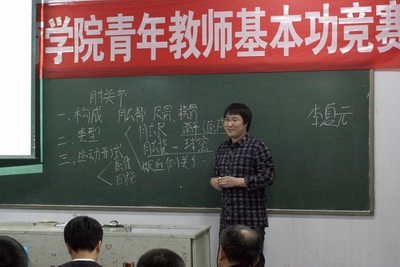 学院青年教师基本功竞赛
肘关节
一、构成 肱骨 尺骨 桡骨
李夏元
二、类型 肱尺 — 滑车
肱桡 — 球窝
三、运动形式 屈伸
桡尺近侧关节